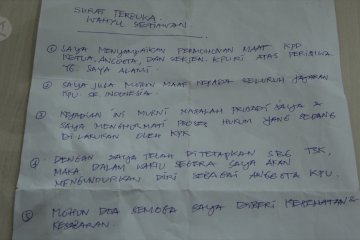 SURAT TERBUKA
WAHYU SETIAWAN
① SAYA MENYAMPAIKAN PERMOHONAN MAAF KPD
KETUA, ANGGOTA, DAN SEKJEN KPU RI ATAS PERISTIWA
YG. SAYA ALAMI
② SAYA JUGA MOHON MAAF KEPADA SELURUH JAJARAN
KPU SE INDONESIA.
③ KEJADIAN INI MURNI MASALAH PRIBADI SAYA &
SAYA MENGHORMATI PROSES HUKUM YANG SEDANG
DILAKUKAN OLEH KPK
④ DENGAN SAYA TELAH DITETAPKAN SBG TSK,
MAKA DALAM WAKTU SEGERA SAYA AKAN
MENGUNDURKAN DIRI SEBAGAI ANGGOTA KPU.
⑤ MOHON DOA SEMOGA SAYA DIBERI KESEHATAN &
KESABARAN.